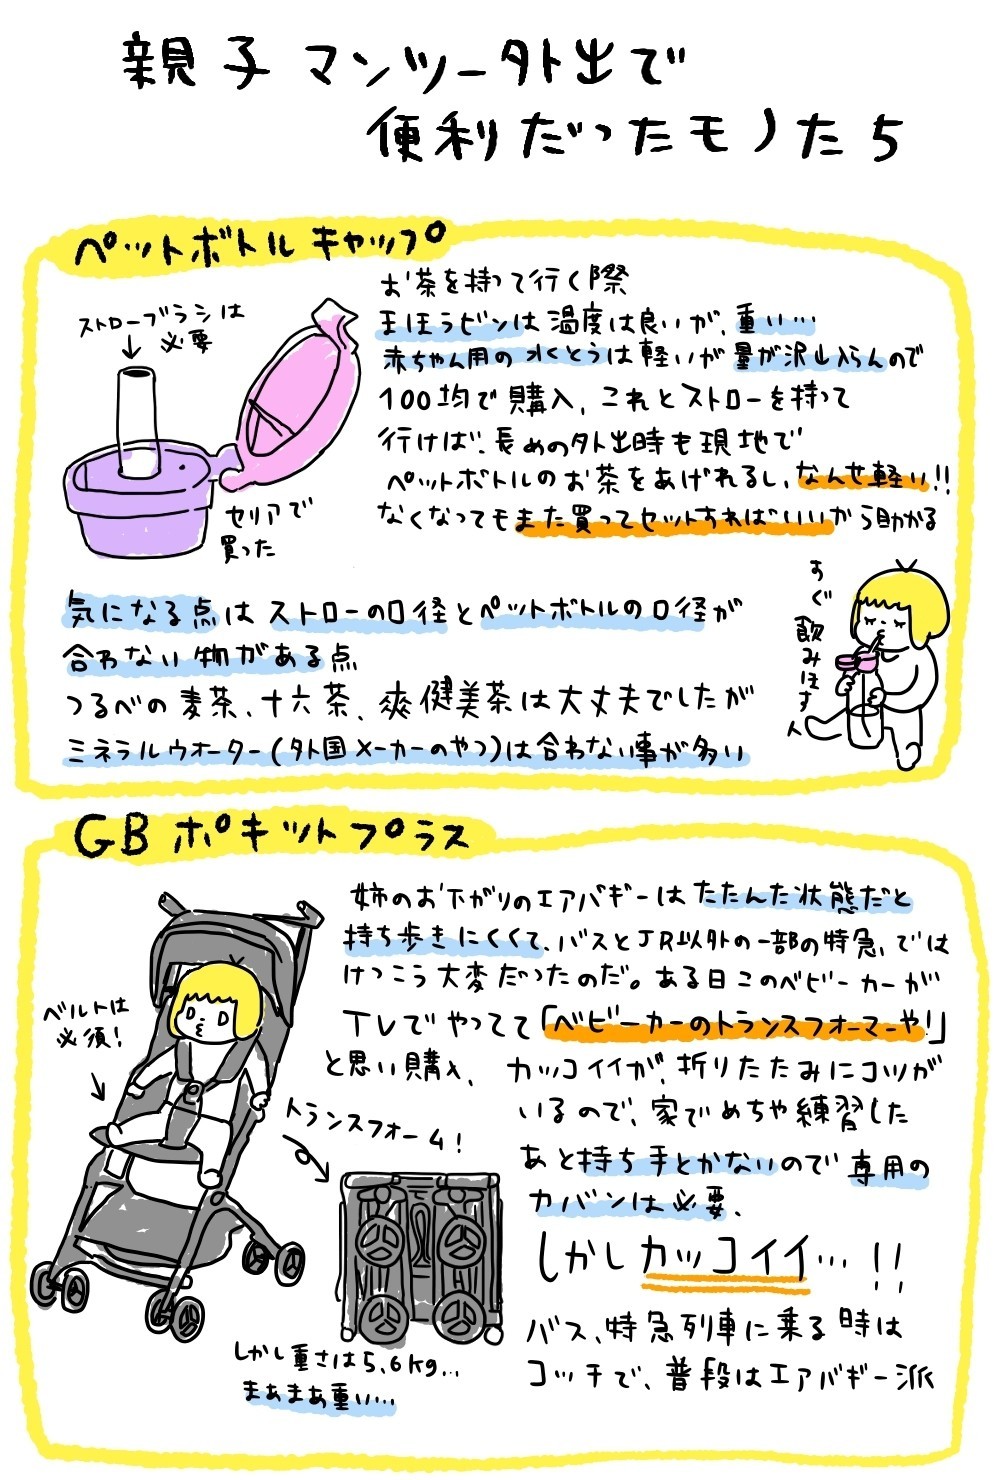 親子マンツー外出で
便利だったモノたち
ペットボトルキャップ
ストローブラシは
必要
セリアで
買った
お茶を持って行く際
まほうビンは温度は良いが、重い…
赤ちゃん用の水とうは軽いが量が沢山入らんので
100均で購入、これとストローを持って
行けば、長めの外出時も現地で
ペットボトルのお茶をあげれるし、なんせ軽い!!
なくなってもまた買ってセットすればいいから助かる
気になる点はストローの口径とペットボトルの口径が
合わない物がある点
つるべの麦茶、十六茶、爽健美茶は大丈夫でしたが
ミネラルウオーター(外国メーカーのやつ)は合わない事が多い
すぐ
飲みほす人
GB ポキットプラス
姉のお下がりのエアバギーはたたんだ状態だと
持ち歩きにくくて、バスとJR以外の一部の特急、では
けっこう大変だったのだ。ある日このベビーカーが
TVでやってて「ベビーカーのトランスフォーマーや!」
と思い購入、カッコイイが、折りたたみにコツが
いるので、家でめちゃ練習した
あと持ち手とかないので専用の
カバンは必要、
しかしカッコイイ…!!
バス、特急列車に乗る時は
コッチで、普段はエアバギー派
ベルトは
必須!
トランスフォーム!
しかし重さは5.6kg…
まあまあ重い…